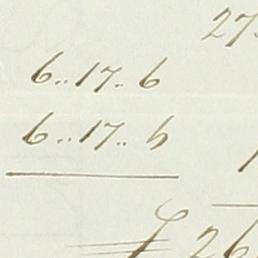 27.
6..17..6
6..17..6
£ 26